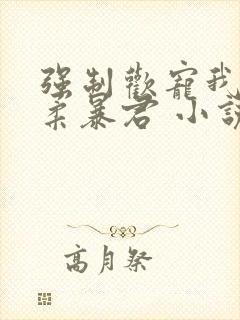 强制歡寵我
柔暴君 小說
高月祭